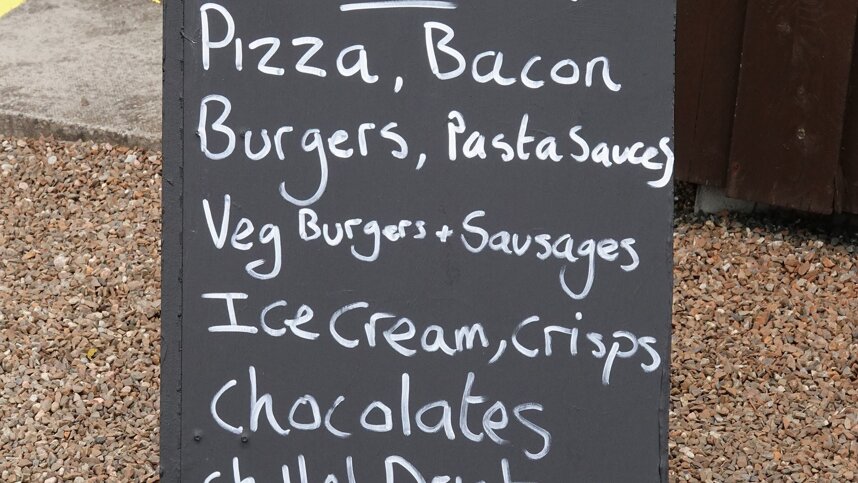 Pizza, Bacon
Burgers, Pasta Sauces
Veg Burgers + Sausages
Ice Cream, Crisps
Chocolates